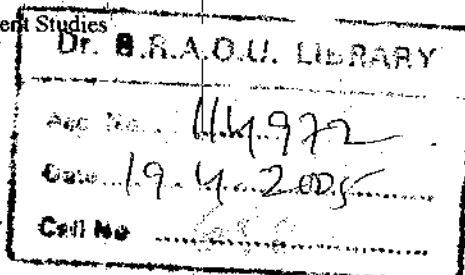 ent Studies
Dr. B.R.A.O.U. LIBRARY
Acc No. 114972
Date 19.4.2005
Call No